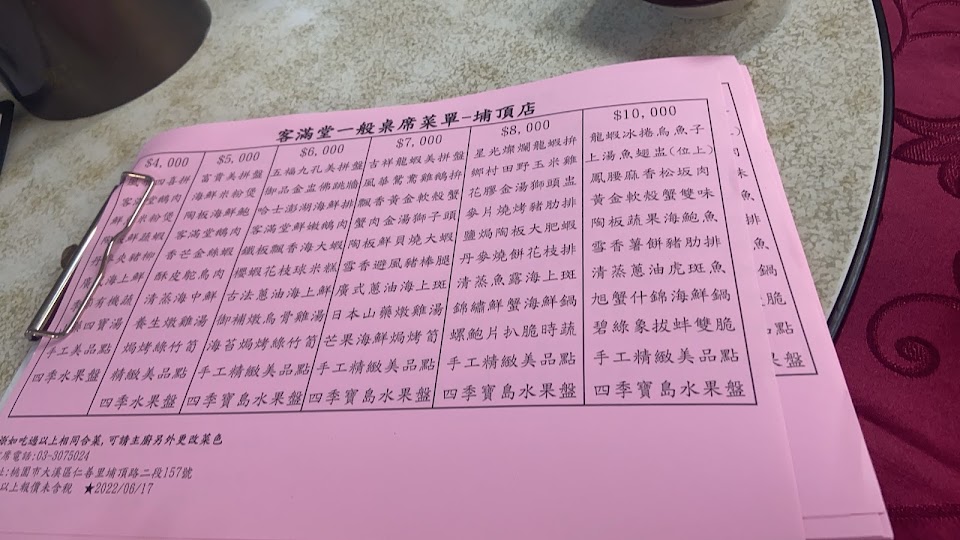 客滿堂一般桌席菜單-埔頂店
$4,000
四喜拼
客滿堂鵝肉
米粉煲
鮮蔬蝦
夾豬柳
海上鮮
有機蔬
四寶湯
手工美品點
四季水果盤
$5,000
富貴美拼盤
海鮮米粉煲
陶板海鮮鮑
客滿堂鵝肉
香芒金絲蝦
酥皮鴕鳥肉
清蒸海中鮮
養生燉雞湯
焗烤綠竹筍
精緻美品點
四季水果盤
$6,000
五福九孔美拼盤
御品金盅佛跳牆
哈士澎湖海鮮排
客滿堂鮮嫩鵝肉
鐵板飄香海大蝦
櫻蝦花枝球米糕
古法蔥油海上鮮
御補燉烏骨雞湯
海苔焗烤綠竹筍
手工精緻美品點
四季寶島水果盤
$7,000
吉祥龍蝦美拼盤
風華鴛鴦雞鵝拚
飄香黃金軟殼蟹
蟹肉金湯獅子頭
陶板鮮貝燒大蝦
雪香避風豬棒腿
廣式蔥油海上斑
日本山藥燉雞湯
芒果海鮮焗烤筍
手工精緻美品點
四季寶島水果盤
$8,000
星光燦爛龍蝦拚
鄉村田野玉米雞
花膠金湯獅頭盅
麥片燒烤豬肋排
鹽焗陶板大肥蝦
丹麥燒餅花枝排
清蒸魚露海上斑
錦鏽鮮蟹海鮮鍋
螺鮑片扒脆時蔬
手工精緻美品點
四季寶島水果盤
$10,000
龍蝦冰捲烏魚子
上湯魚翅盅(位上)
鳳腰麻香松坂肉
黃金軟殼蟹雙味
陶板蔬果海鮑魚
雪香薯餅豬肋排
清蒸蔥油虎斑魚
旭蟹什錦海鮮鍋
碧綠象拔蚌雙脆
手工精緻美品點
四季寶島水果盤
如吃過以上相同合菜,可請主廚另外更改菜色
席電話;03-3075024
址:桃園市大溪區仁善里埔頂路二段157號
以上報價未含稅 ★2022/06/17